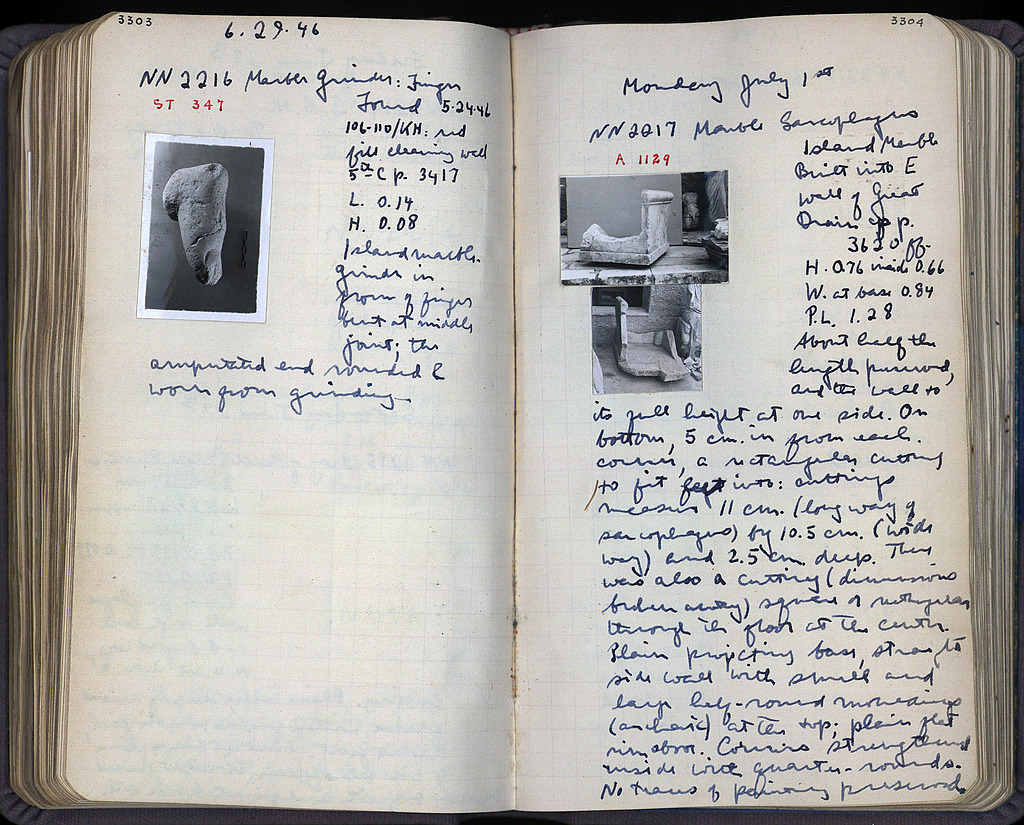 3303
6.29.46
NN 2216 Marble Grinder: Finger
ST 347
Found 5-24-46
106-110/KH: red
fill cleaning wall
5th C p. 3417
L. 0.14
H. 0.08
Island marble.
Grinder in
form of finger
bent at middle
joint; the
amputated end rounded &
worn from grinding.
3304
Monday July 1st
NN 2217 Marble Sarcophagus
A 1129
Island Marble
Built into E
wall of Great
Drain pp.
3620 ff.
H. 0.76 inside 0.66
W. at base 0.84
P.L. 1.28
About half the
length preserved,
and the wall to
its full height at one side. On
bottom, 5 cm. in from each
corner, a rectangular cutting
to fit feet into: cuttings
measure 11 cm. (long way of
sarcophagus) by 10.5 cm. (wide
way) and 2.5 cm. deep. There
was also a cutting (dimensions
broken away) square or rectangular
through the floor at the center.
Plain projecting base, straight
side wall with small and
large half-round mouldings
(archaic) at the top; plain flat
rim above. Corners strengthened
inside with quarter-rounds.
No traces of painting preserved.